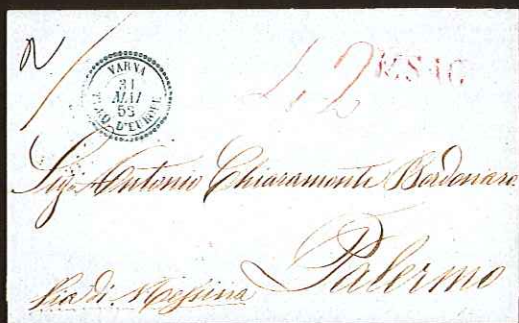 VARNA
31
MAI
53
TURQ. D'EUROPE
42
Sigr. Antonio Chiaramonte Bordonaro
Palermo
Via di Messina